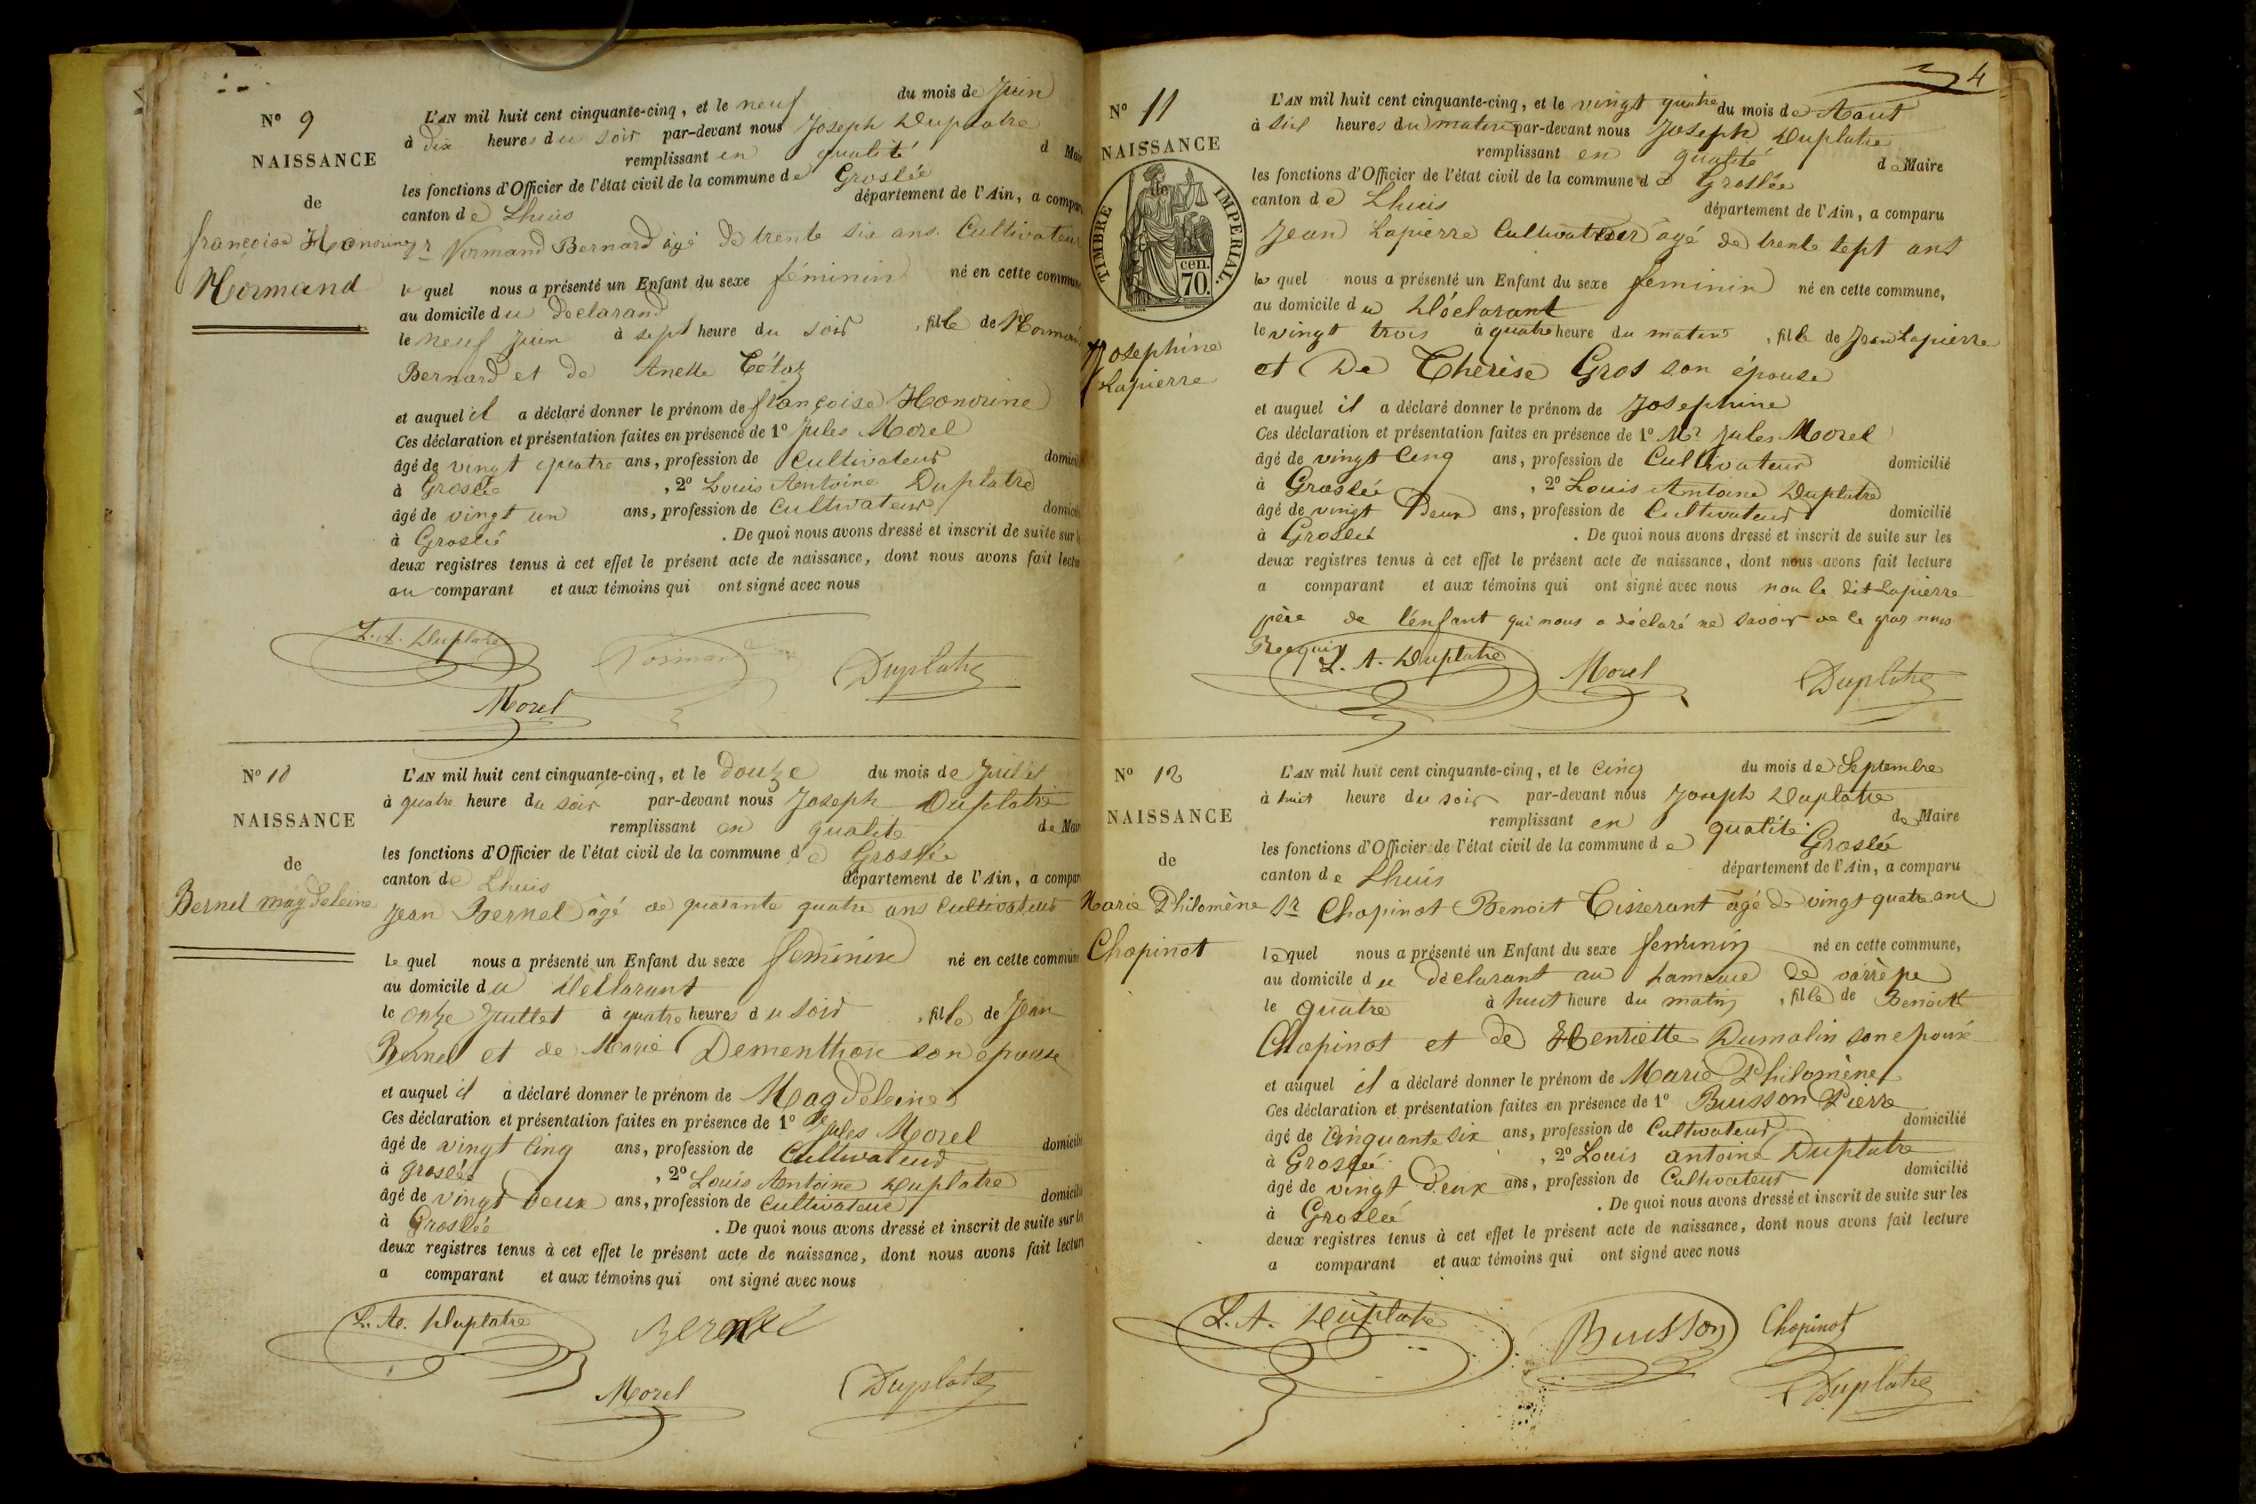 N° 9
NAISSANCE
de
françoise Honorine
Normand
L'AN mil huit cent cinquante-cinq, et le neuf du mois de Juin
à dix heures du soir par-devant nous Joseph Duplatre
remplissant en qualité d Maire
les fonctions d'Officier de l'état civil de la commune de Groslée
canton de Lhuis département de l'Ain, a comparu
Sr Normand Bernard âgé de trente six ans. Cultivateur
le quel nous a présenté un Enfant du sexe féminin né en cette commune
au domicile du déclarand
le neuf juin à sept heure du soir, fille de Normand
Bernard et de Anette
et auquel il a déclaré donner le prénom de françoise Honorine
Ces déclaration et présentation faites en présence de 1° Jules Morel
âgé de vingt quatre ans, profession de Cultivateur domicilié
à Groslée, 2° Louis Antoine Duplatre
âgé de vingt un ans, profession de Cultivateur domicilié
à Groslée. De quoi nous avons dressé et inscrit de suite sur les
deux registres tenus à cet effet le présent acte de naissance, dont nous avons fait lecture
au comparant et aux témoins qui ont signé avec nous
L. A. Duplatre Normand Duplatre
Morel
N° 10
NAISSANCE
de
Bernel magdeleine
L'AN mil huit cent cinquante-cinq, et le douze du mois de Juillet
à quatre heure du soir par-devant nous Joseph Duplatre
remplissant en qualité de Maire
les fonctions d'Officier de l'état civil de la commune de Groslée
canton de Lhuis département de l'Ain, a comparu
Jean Bernel âgé de quarante quatre ans Cultivateur
le quel nous a présenté un Enfant du sexe féminin né en cette commune
au domicile du déclarant
le onze Juillet à quatre heures du soir, fille de Jean
Bernel et de Marie Dementhon son épouse
et auquel il a déclaré donner le prénom de Magdeleine
Ces déclaration et présentation faites en présence de 1° Jules Morel
âgé de vingt cinq ans, profession de Cultivateur domicilié
à groslée, 2° Louis Antoine Duplatre
âgé de vingt deux ans, profession de Cultivateur domicilié
à Groslée. De quoi nous avons dressé et inscrit de suite sur les
deux registres tenus à cet effet le présent acte de naissance, dont nous avons fait lecture
a comparant et aux témoins qui ont signé avec nous
L. A. Duplatre Bernel
Morel Duplatre
4
N° 11
NAISSANCE
de
TIMBRE IMPERIAL.
cen.
70.
Josephine
Lapierre
L'AN mil huit cent cinquante-cinq, et le vingt quatre du mois de Aout
à six heures du matin par-devant nous Joseph Duplatre
remplissant en qualité de Maire
les fonctions d'Officier de l'état civil de la commune de Groslée
canton de Lhuis département de l'Ain, a comparu
Jean Lapierre Cultivateur âgé de trente sept ans
le quel nous a présenté un Enfant du sexe féminin né en cette commune,
au domicile du Déclarant
le vingt trois à quatre heure du matin, fille de Jean Lapierre
et De Thérèse Gros son épouse
et auquel il a déclaré donner le prénom de Josephine
Ces déclaration et présentation faites en présence de 1° Mr Jules Morel
âgé de vingt cinq ans, profession de Cultivateur domicilié
à Groslée, 2° Louis Antoine Duplatre
âgé de vingt Deux ans, profession de Cultivateur domicilié
à Groslée. De quoi nous avons dressé et inscrit de suite sur les
deux registres tenus à cet effet le présent acte de naissance, dont nous avons fait lecture
a comparant et aux témoins qui ont signé avec nous non le dit Lapierre
père de l'enfant qui nous a déclaré ne savoir de ce par nous
Requis
L. A. Duplatre Morel Duplatre
N° 12
NAISSANCE
de
Marie Philomène
Chapinot
L'AN mil huit cent cinquante-cinq, et le cinq du mois de Septembre
à huit heure du soir par-devant nous Joseph Duplatre
remplissant en qualité de Maire
les fonctions d'Officier de l'état civil de la commune de Groslée
canton de Lhuis département de l'Ain, a comparu
Sr Chapinot Benoit Tisserant âgé de vingt quatre ans
le quel nous a présenté un Enfant du sexe féminin né en cette commune,
au domicile du déclarant au hameau de varrèpe
le quatre à huit heure du matin, fille de Benoit
Chapinot et de Henriette Dumolin son épouse
et auquel il a déclaré donner le prénom de Marie Philomène
Ces déclaration et présentation faites en présence de 1° Buisson Pierre
âgé de cinquante six ans, profession de Cultivateur domicilié
à Groslée, 2° Louis antoine Duplatre
âgé de vingt deux ans, profession de Cultivateur domicilié
à Groslée. De quoi nous avons dressé et inscrit de suite sur les
deux registres tenus à cet effet le présent acte de naissance, dont nous avons fait lecture
a comparant et aux témoins qui ont signé avec nous
L. A. Duplatre Buisson Chapinot
Duplatre